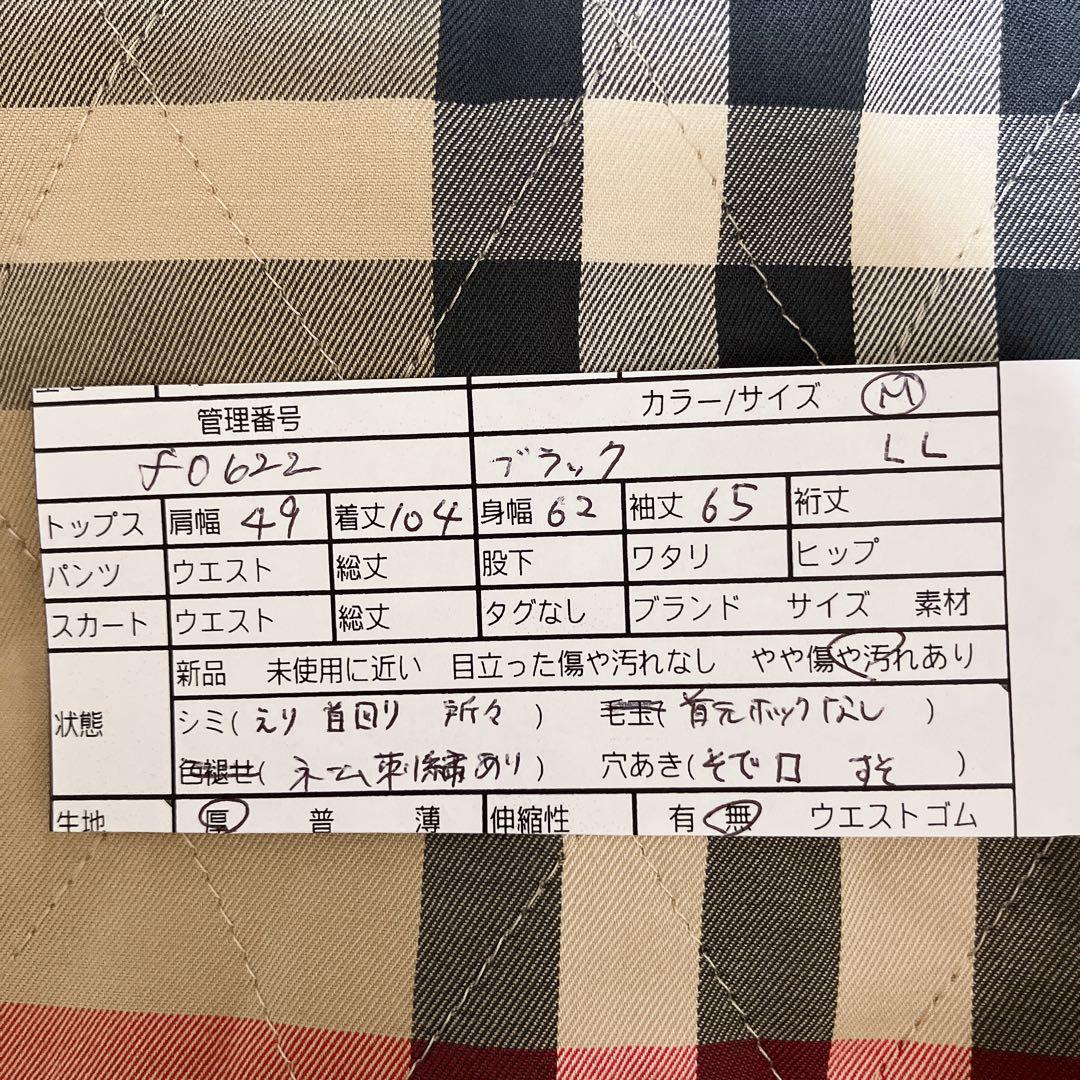 管理番号 カラー/サイズ M
f0622 ブラック LL
トップス 肩幅 49 着丈 104 身幅 62 袖丈 65 裄丈
パンツ ウエスト 総丈 股下 ワタリ ヒップ
スカート ウエスト 総丈 タグなし ブランド サイズ 素材
状態 新品 未使用に近い 目立った傷や汚れなし やや傷や汚れあり
シミ(えり 首回り 所々) 毛玉(首元ホックなし)
色褪せ(ネーム刺繍あり) 穴あき(そで口 すそ)
生地 厚 普 薄 伸縮性 有 無 ウエストゴム